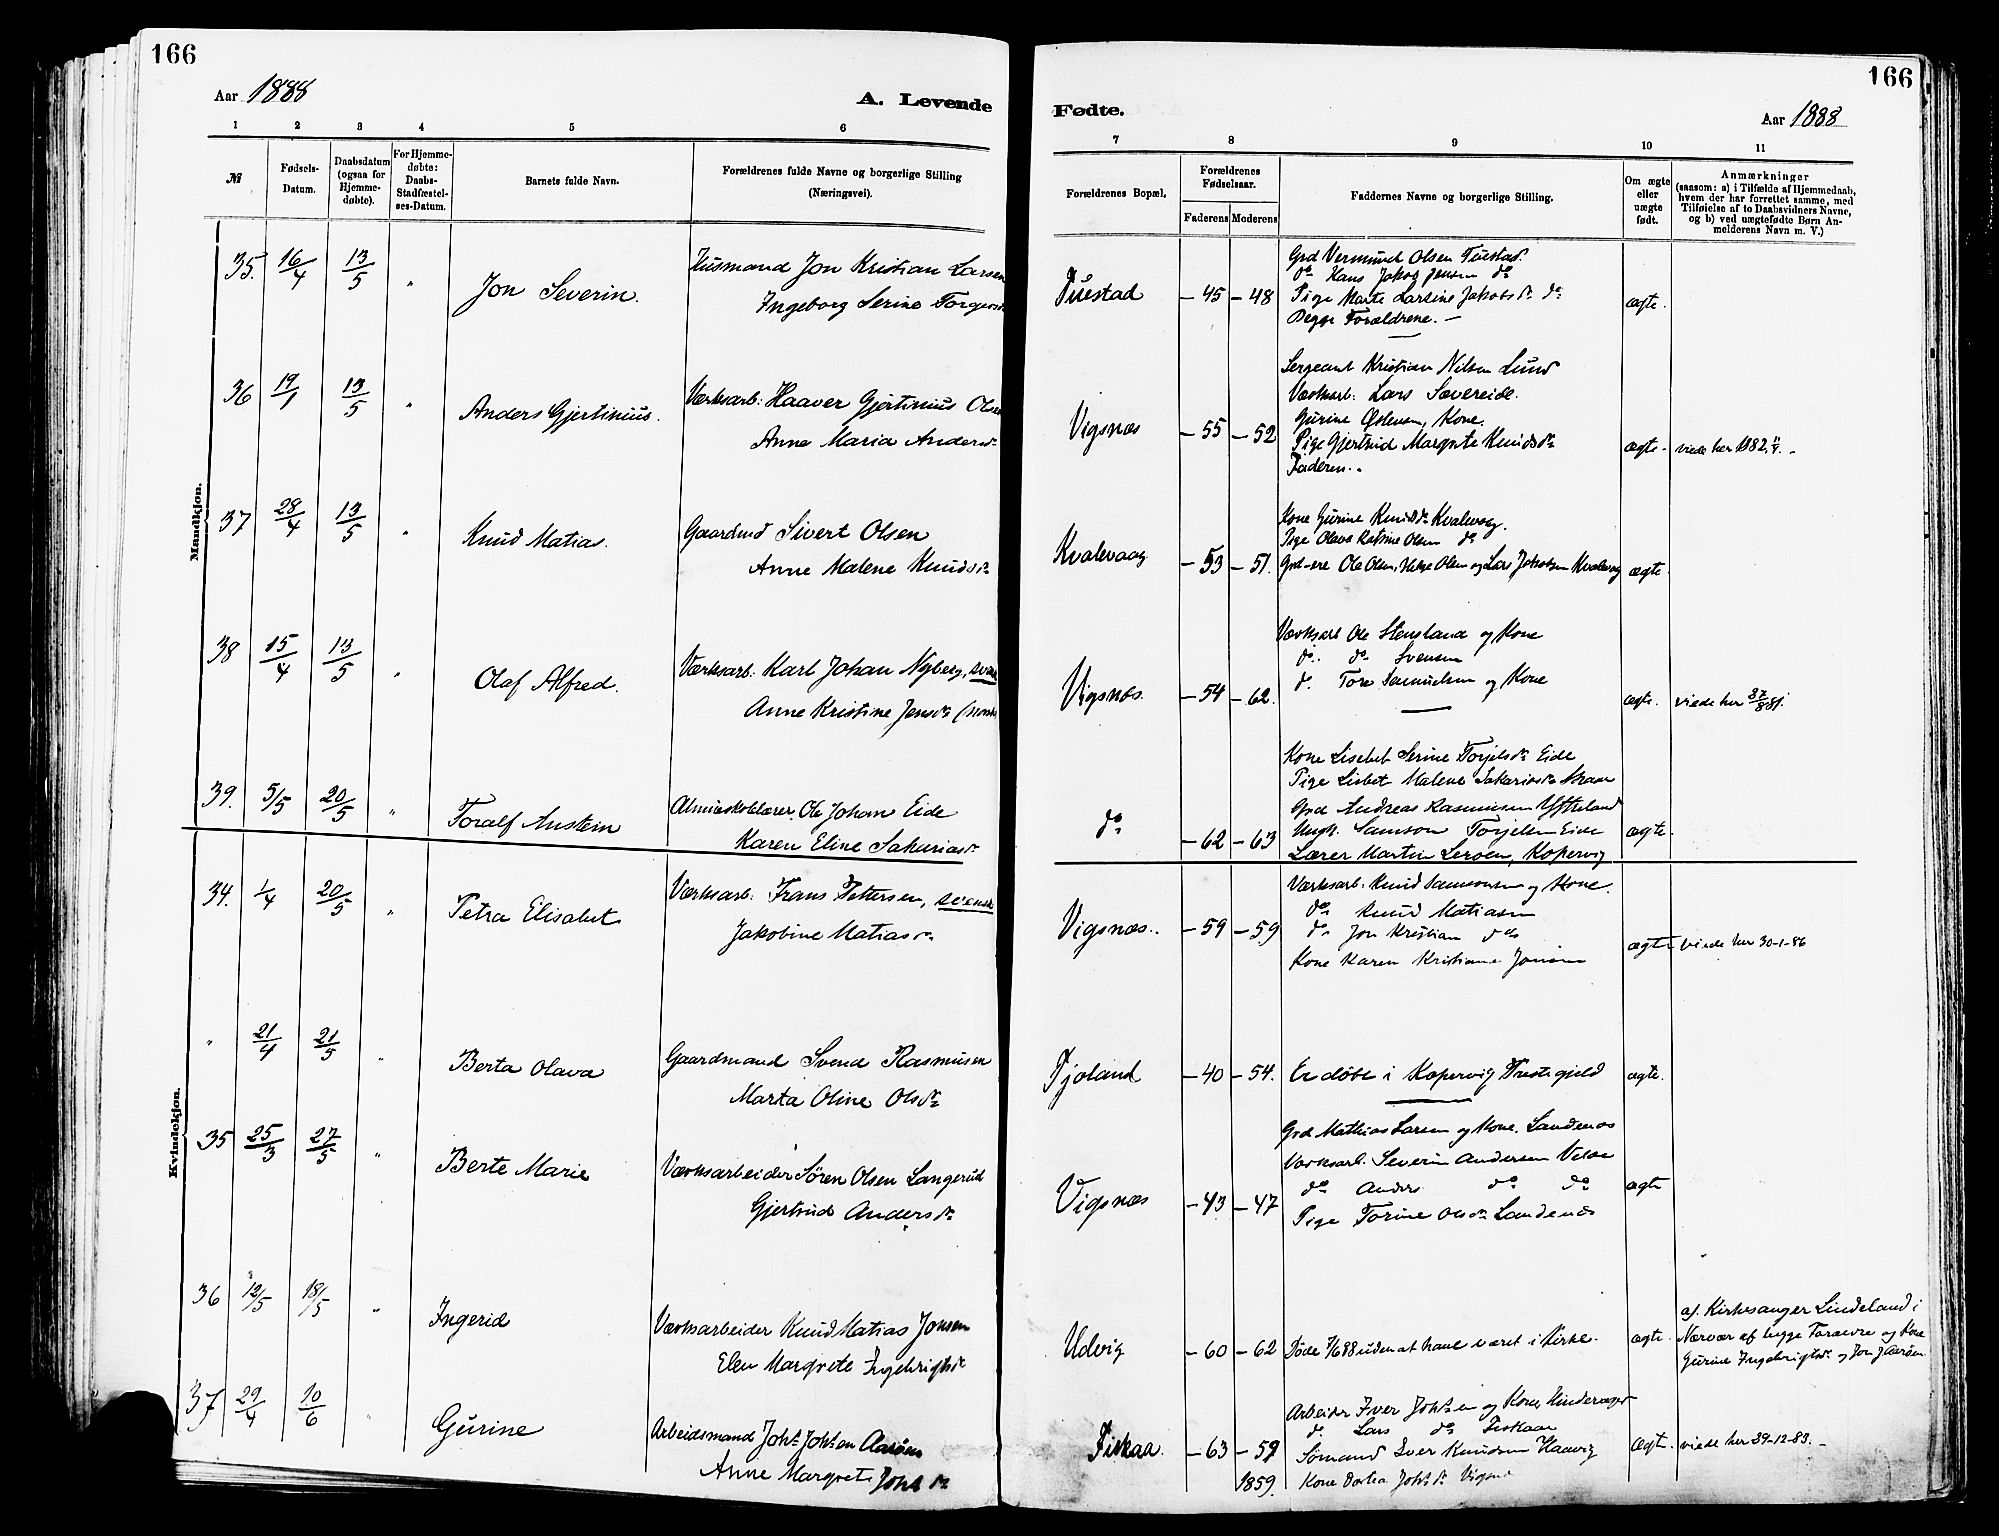 166
Aar 1888
A. Levende
1 2 3 4 5 6
№
Fødsels-Datum.
Daabsdatum (ogsaa for Hjemme-døbte).
For Hjemme-døbte: Daabs-Stadfæstel-ses-Datum.
Barnets fulde Navn.
Forældrenes fulde Navne og borgerlige Stilling (Næringsvei).
Mandkjøn.
35. 16/4 13/5 " Jon Severin. Husmand Jon Kristian Larsen
Ingeborg Serine Torgersdr
36 19/1 13/5 " Anders Gjertinius. Værksarb: Haaver Gjertinius Olsen
Anne Maria Andersdr
37 28/4 13/5 " Knud Matias. Gaardmd Sivert Olsen
Anne Malene Knudsdr
38 15/4 13/5 " Olaf Alfred. Værksarb. Karl Johan Nyberg, svensk
Anne Kristine Jensdr (norsk
39. 5/5 20/5 " Toralf Austein Almueskolelærer Ole Johan Eide
Karen Eline Sakariasdr
Kvindekjøn.
34. 1/4 20/5 " Petra Elisabet Værksarb: Frans Pettersen, svensk
Jakobine Matiasdr
" 21/4 21/5 " Berta Olava Gaardmand Svend Rasmusen
Marta Oline Olsdr
35 25/3 27/5 " Berte Marie Værksarbeider Søren Olsen Langerud
Gjertrud Andersdr
36 12/5 18/5 " Ingerid Værksarbeider Knud Matias Jonsen
Elen Margrete Ingebrigtsdr
37 29/4 10/6 " Gurine Arbeidsmand Johs Johsen Aarøen
Anne Margrete Johsdr
166
Fødte.
Aar 1888
7 8 9 10 11
Forældrenes Bopæl.
Forældrenes Fødselsaar.
Faderens Moderens
Faddernes Navne og borgerlige Stilling.
Om ægte eller uægte født.
Anmærkninger
(saasom: a) i Tilfælde af Hjemmedaab,
hvem der har forrettet samme, med
Tilføielse af to Daabsvidners Navne,
og b) ved uægtefødte Børn An-
melderens Navn m. V.)
Grd Vermund Olsen Tuestad.
do Hans Jakob Jensen do
Tuestad – 45 – 48 Pige Marte Larsine Jakobsdr do ægte.
Begge Forældrene. –
Sergeant Kristian Nilsen Lund
Værksarb: Lars Sævereide.
Vigsnæs – 55 – 52 Gurine Østensen, Kone.
Pige Gjertrud Margrete Knudsdr ægte – viede her 1882
Faderen. –
Kone Gurine Knudsdr Kvalevåg.
Pige Olava Katrine Olsen do
Kvalevaag – 53 – 51. Grd-ere Ole Olsen, Helge Olsen og Lars Jakobsen Kvalevåg ægte
Værksarb Ole Stensland og Kone
do do Svensen
Vigsnæs. – 54 – 62. d. Tore Samuelsen og Kone ægte. viede her
Kone Lisebet Serine Torjelsdr Eide
Pige Lisbet Malene Sakariasdr
Grd Andreas Rasmusen Yttreland
do – 62 – 63 Ungk. Samson Torjelsen Eide ægte.
Lærer Martin Lerøen, Kopervig
Værksarb: Knud Samsonsen og Kone.
do Knud Matiasen
Vigsnæs. – 59 – 59 do Jon Kristian do
Kone Karen Kristiane Jonsen ægte viede her 30-1-86
Tjøland – 40 – 54. Er døbt i Kopervig Prestegjeld ægte.
Grd Mathias Larsen og Kone. Sandenæs
Værksarb. Severin Andersen Velde
do Anders do do ægte
Vigsnæs – 43 – 47 Pige Torine Olsdr Sandenæs
Udvig – 60 – 62 Døde 7/6 88 uden at have været i Kirke. ægte.
af. Kirkesanger Lindeland i
Nærvær af begge Forældre og Kone
Gurine Ingebrigtsdr og Jon J Aarøen
Arbeider Iver Johsen og Kone,
d. Lars do Fiskaa
Fiskaa. – 63 – 59 Sømand Sver Knudsen Haavig Ægt. viede her 29-12-83. –
1859. Kone Dortea Johsdr Vigsnæs